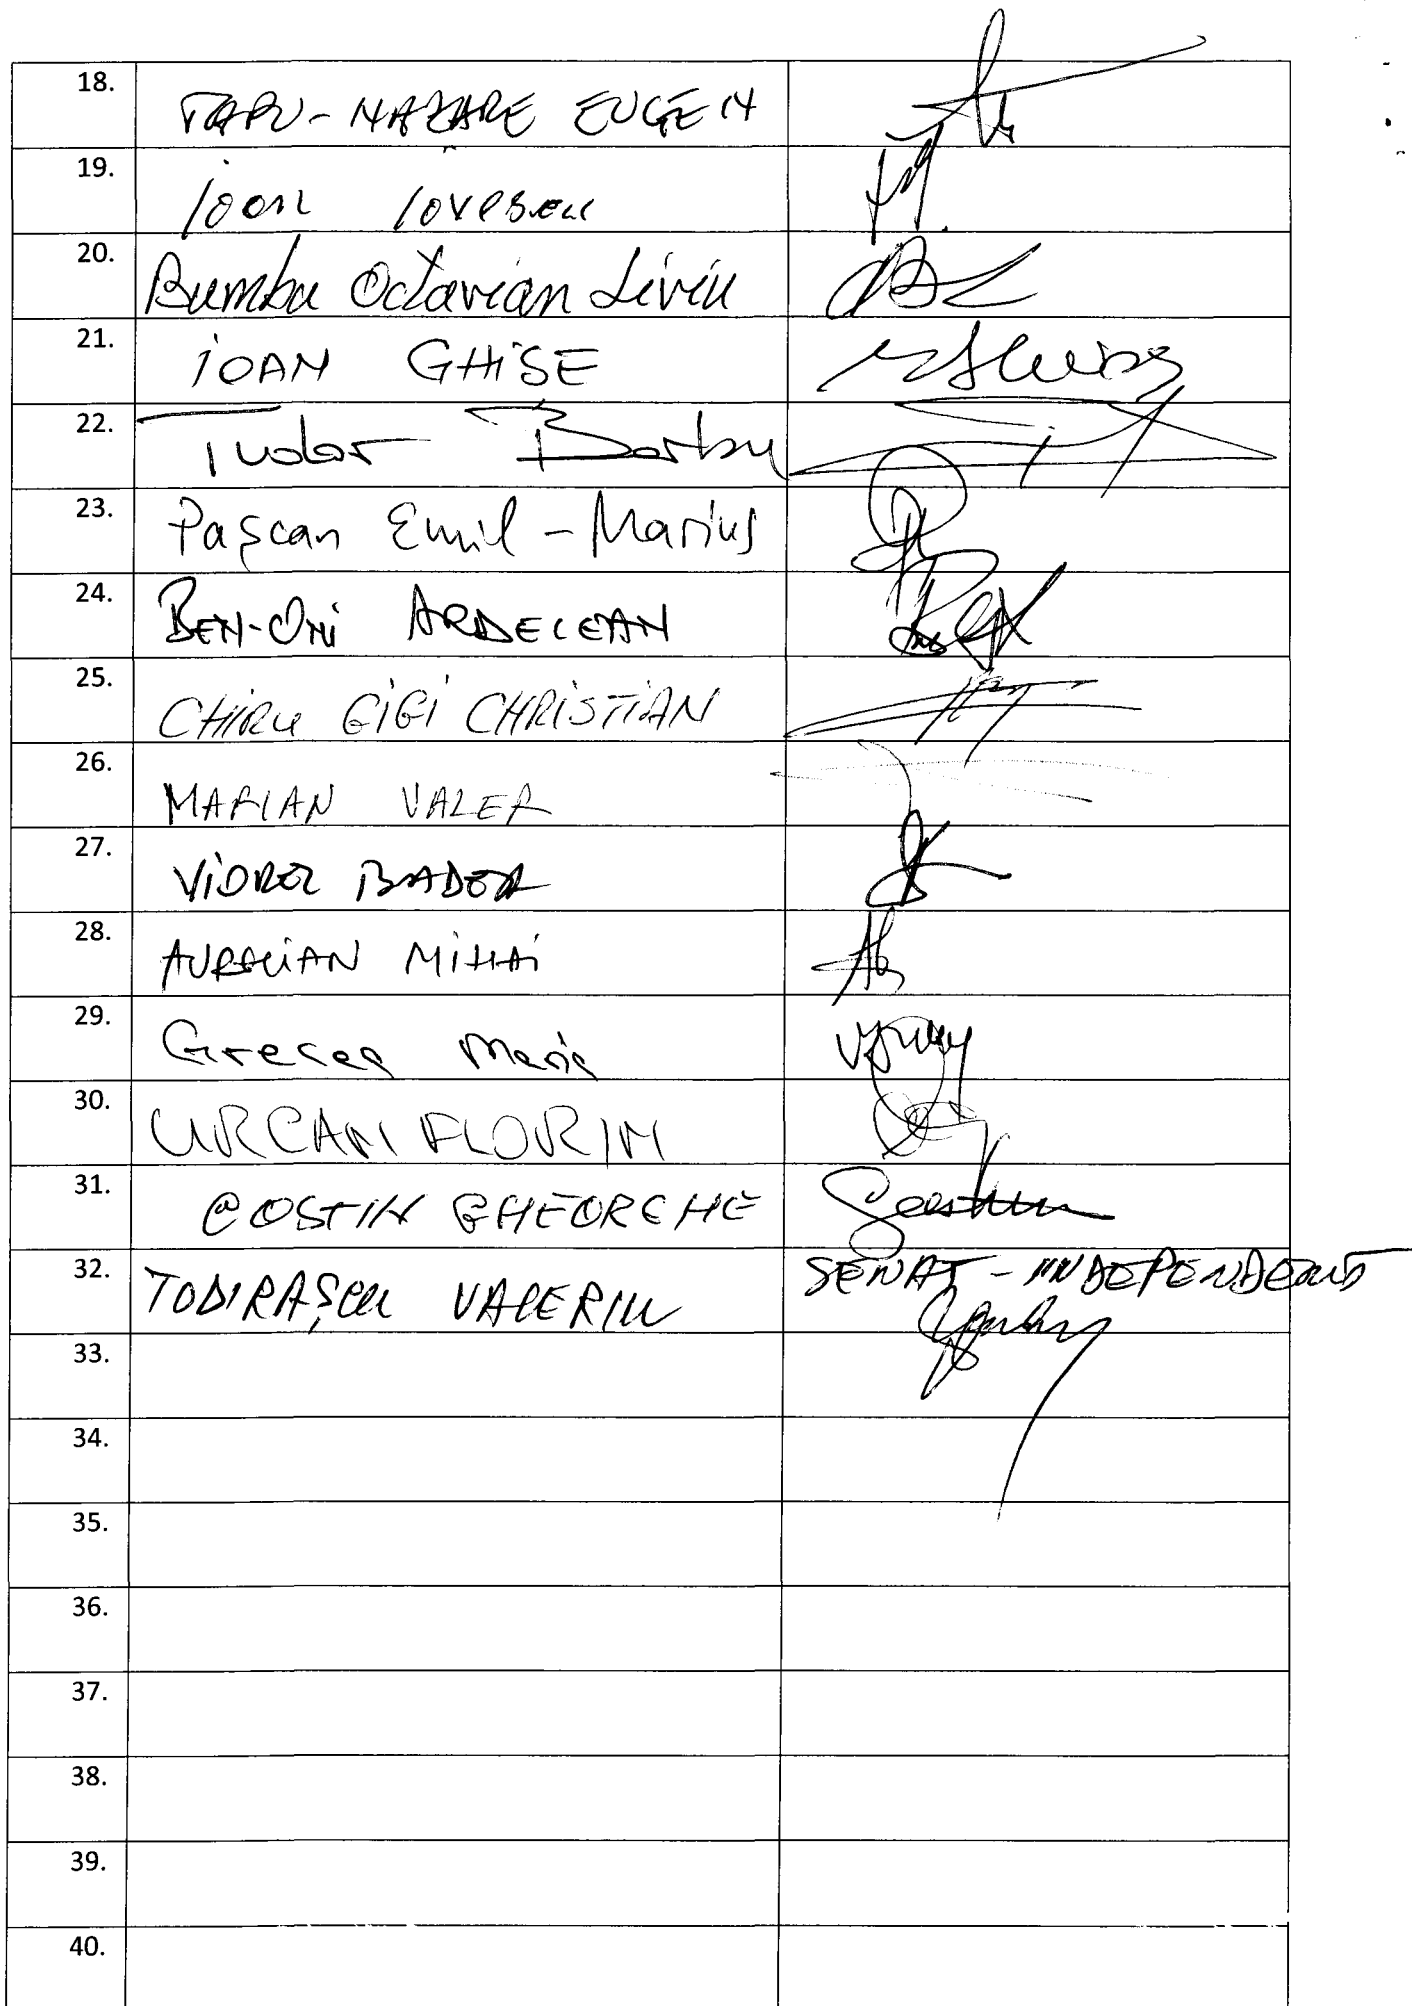 18. ȚAPU-NAZARE EUGEN
19. Ioan Iovescu
20. Bumba Octavian Liviu
21. iOAN GHiSE
22. Tudor Barbu
23. Pașcan Emil-Marius
24. BEN-ONi ARDELEAN
25. CHIRU GiGi CHRiSTiAN
26. MARIAN VALER
27. ViOREL BADEA
28. AURELiAN MiHAi
29. Grecea Maria
30. URCAN FLORIN
31. COSTIN GHEORGHE
32. TODIRAȘCU VALERIU SENAT - INDEPENDENT
33.
34.
35.
36.
37.
38.
39.
40.